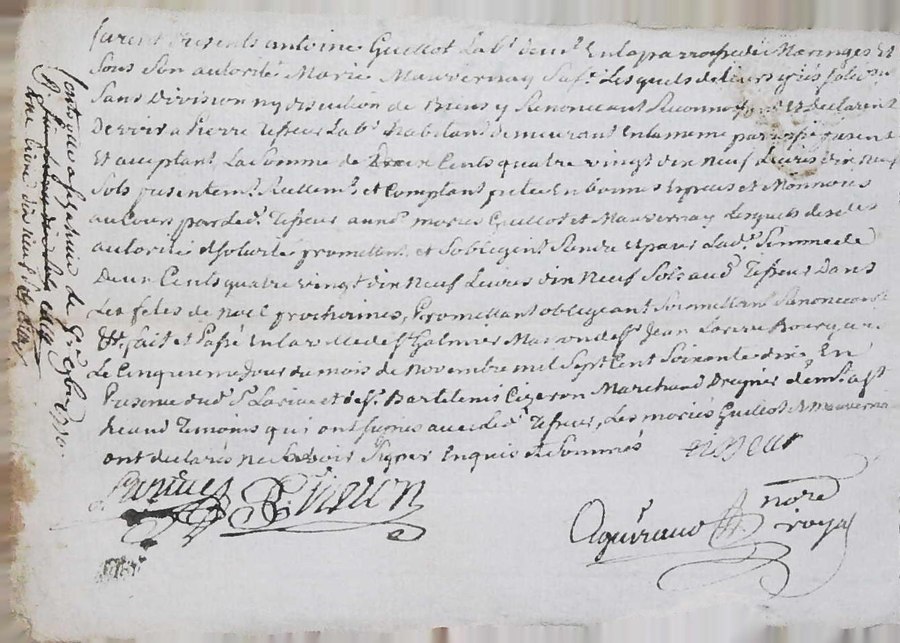 furent presents antoine Guillot Lab.r dem.t En la parroisse de Maringes Et
Sous Son autorité Marie Mauvernay Sa f.e Lesquels de leurs grés solid.nt
Sans Division ny discution de Biens y Renonceant Reconnoissent Et declarent
Devoir a Pierre Tisseur Lab.r habitant demeurant En la meme parroisse present
Et acceptant La Somme de Deux Cents quatre vingt dix Neuf Livres dix Neuf
Sols presentem.t Reellem.t et Comptant pretée En bonnes Especes et Monnoies
au Cours par led.t Tisseur aux d.s mariés Guillot et Mauvernay Lesquels de
autorité et solidité promettent et Sobligent Rendre Et payer Lad.e Somme de
Deux Cents quatre vingt dix Neuf Livres dix Neuf Sols aud.t Tisseur Dans
Les fetes de Noel prochaines, Promettant obligeant Soumettant Renonceant
&c. fait et Passé En la ville de S.t Galmier Maison de S.r Jean Bourgeois
Le Cinquieme Jour du mois de Novembre mil Sept Cent Soixante dix, En
Presence dud.t S.r et de S.r Barthelemis Cizeron Marchand Drapier dem.t aud.t
temoins qui ont signés avec led.t Tisseur, Les mariés Guillot et Mauvernay
ont declarés ne Scavoir Signer Enquis et Sommés
tisseur
Cizeron
Aguiraud no.re
royal
Controllé a S.t Galmier Le 9.bre 1770.
une livre dix neuf sols